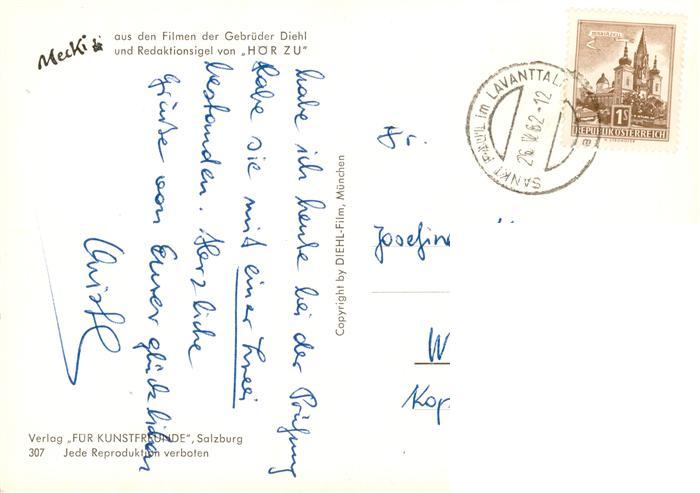 Mecki
aus den Filmen der Gebrüder Diehl
und Redaktionsigel von „HÖR ZU"
habe ich heute bei der Prüfung
habe sie mit einer Zwei
bestanden. Herzliche
Grüße von Eurer glücklichen
Christl
Copyright by DIEHL-Film, München
Verlag „FÜR KUNSTFREUNDE", Salzburg
307 Jede Reproduktion verboten
SANKT PAUL im LAVANTTAL
26. 62-12
MARIAZELL
1S
REPUBLIK ÖSTERREICH
Josefin
W
Kop